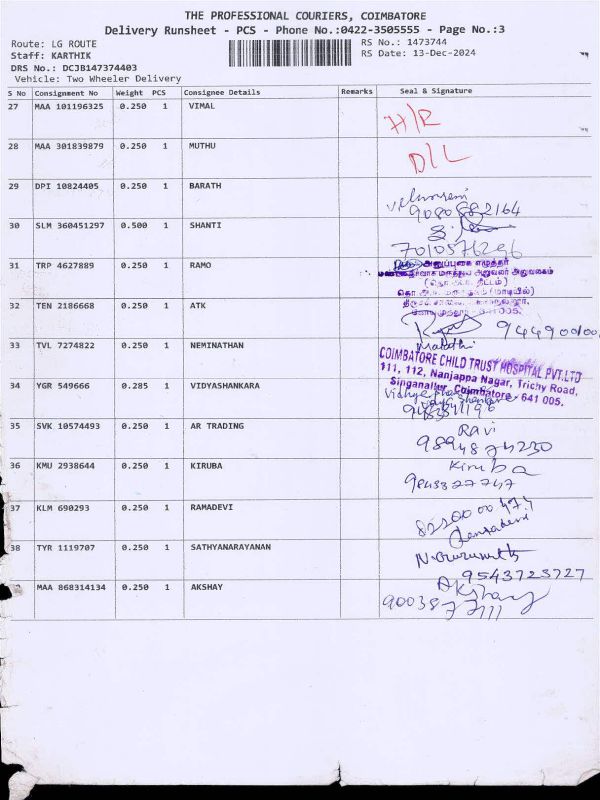 THE PROFESSIONAL COURIERS, COIMBATORE
Delivery Runsheet - PCS - Phone No.:0422-3505555 - Page No.:3
Route: LG ROUTE
RS No.: 1473744
Staff: KARTHIK
RS Date: 13-Dec-2024
DRS No.: DCJB147374403
Vehicle: Two Wheeler Delivery
S No Consignment No Weight PCS Consignee Details Remarks Seal & Signature
27 MAA 101196325 0.250 1 VIMAL H/R
28 MAA 301839879 0.250 1 MUTHU D/L
29 DPI 10824405 0.250 1 BARATH
9080882164
30 SLM 360451297 0.500 1 SHANTI
7010576296
31 TRP 4627889 0.250 1 RAMO
அனுப்புகை எழுத்தர்
32 TEN 2186668 0.250 1 ATK
33 TVL 7274822 0.250 1 NEMINATHAN Malathi
COIMBATORE CHILD TRUST HOSPITAL PVT.LTD
111, 112, Nanjappa Nagar, Trichy Road,
Singanallur, Coimbatore - 641 005.
34 YGR 549666 0.285 1 VIDYASHANKARA
35 SVK 10574493 0.250 1 AR TRADING Ravi
9894874230
36 KMU 2938644 0.250 1 KIRUBA Kiruba
9843327747
37 KLM 690293 0.250 1 RAMADEVI
38 TYR 1119707 0.250 1 SATHYANARAYANAN
9543723727
MAA 868314134 0.250 1 AKSHAY Akshay
9003877111